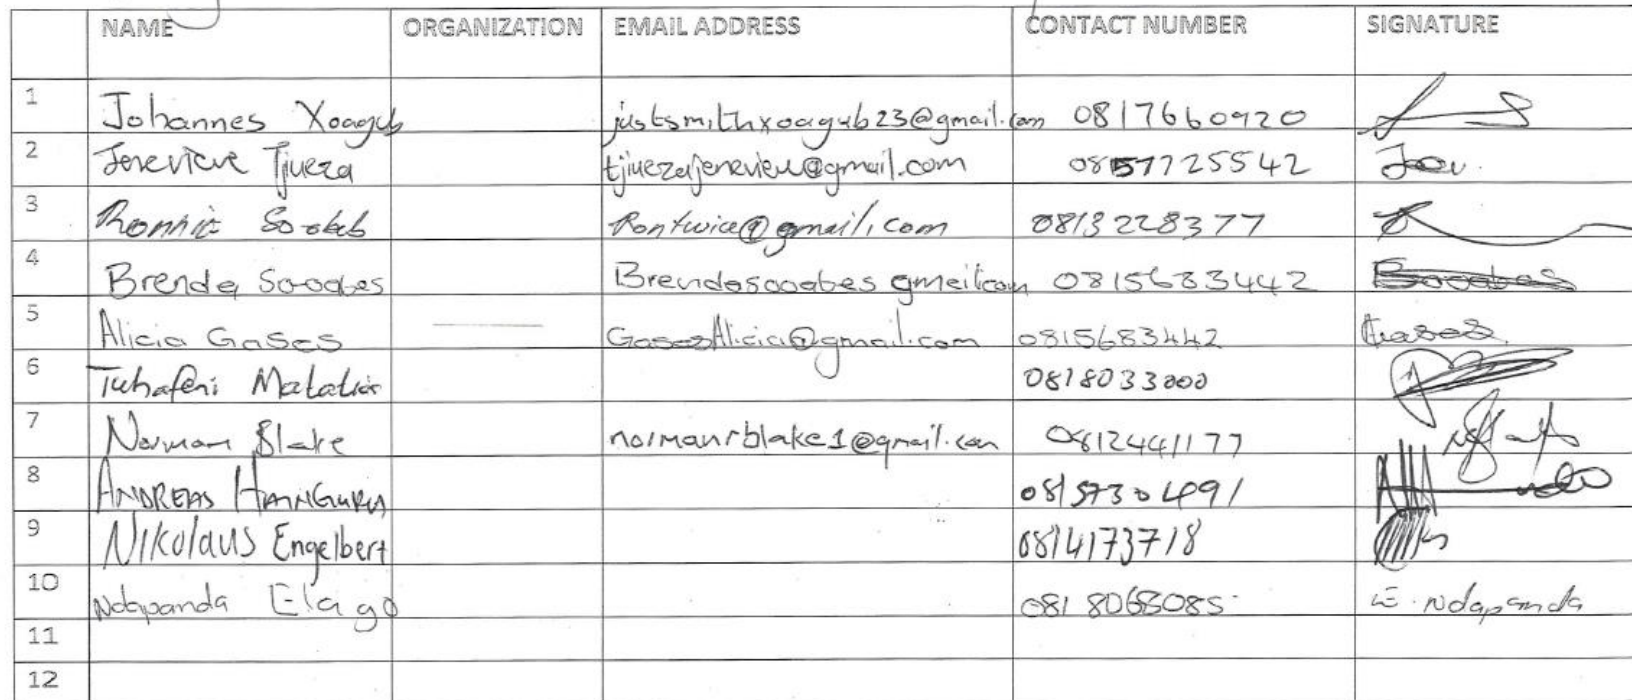 NAME ORGANIZATION EMAIL ADDRESS CONTACT NUMBER SIGNATURE
1 Johannes Xoagub justsmithxoagub23@gmail.com 0817660920
2 Jenevieve Tjiueza tjiuezajenevieu@gmail.com 0857725542
3 Ronnie Rontwice@gmail.com 0813228377
4 Brenda Sooabes Brendasooabes gmailcom 0815683442 Sooabes
5 Alicia Gases GasesAlicia@gmail.com 0815683442 Gases
6 Tuhafeni 0818033000
7 Norman Blake normanrblake1@gmail.com 0812441177
8 ANDREAS HANGURA 0815730491
9 Nikolaus Engelbert 0814173718
10 Ndapanda Elago 0818068085 E. Ndapanda
11
12